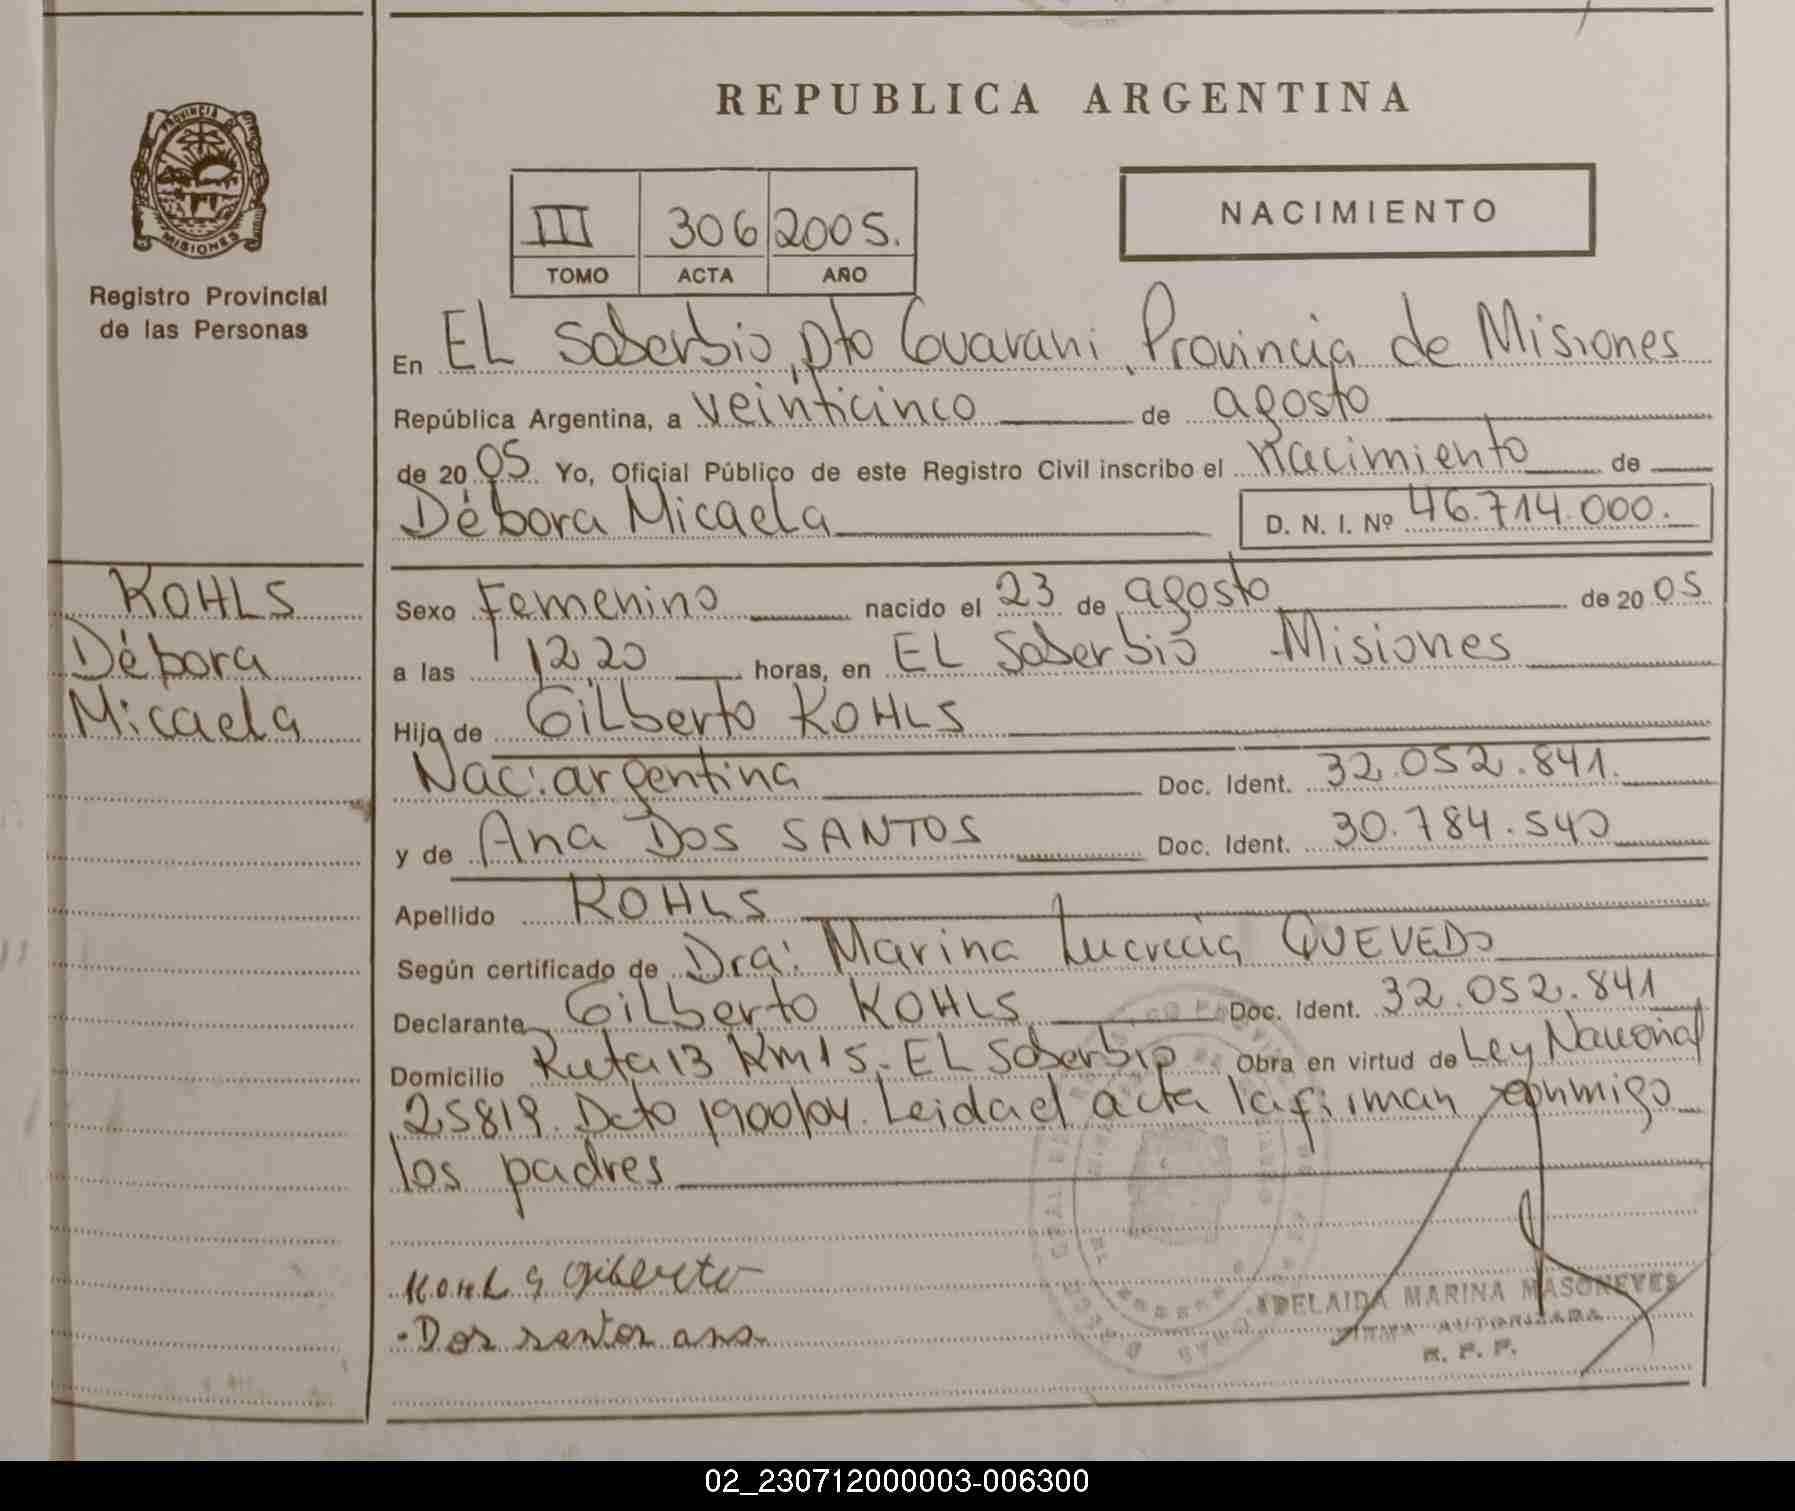 REPUBLICA ARGENTINA
PROVINCIA DE
MISIONES
Registro Provincial
de las Personas
III 306 2005.
TOMO ACTA AÑO
NACIMIENTO
En EL Soberbio, Dto Guarani, Provincia de Misiones
República Argentina, a veinticinco de agosto
de 2005 Yo, Oficial Público de este Registro Civil inscribo el nacimiento de
Débora Micaela D. N. I. Nº 46.714.000.
KOHLS
Débora
Micaela
Sexo Femenino nacido el 23 de agosto de 2005
a las 12,20 horas, en EL Soberbio Misiones
Hija de Gilberto KOHLS
Nac: argentina Doc. Ident. 32.052.841.
y de Ana DOS SANTOS Doc. Ident. 30.784.540
Apellido KOHLS
Según certificado de Dra: Marina Lucrecia QUEVEDO
Declarante Gilberto KOHLS Doc. Ident. 32.052.841
Domicilio Ruta 13 Km 15. EL Soberbio Obra en virtud de Ley Nacional
25819. Dcto 1900/04. Leida el acta la firman conmigo
los padres
KOHLS Gilberto
Dos santos ana
ADELAIDA MARINA MASONEVES
FIRMA AUTORIZADA
R. P. P.
02_230712000003-006300